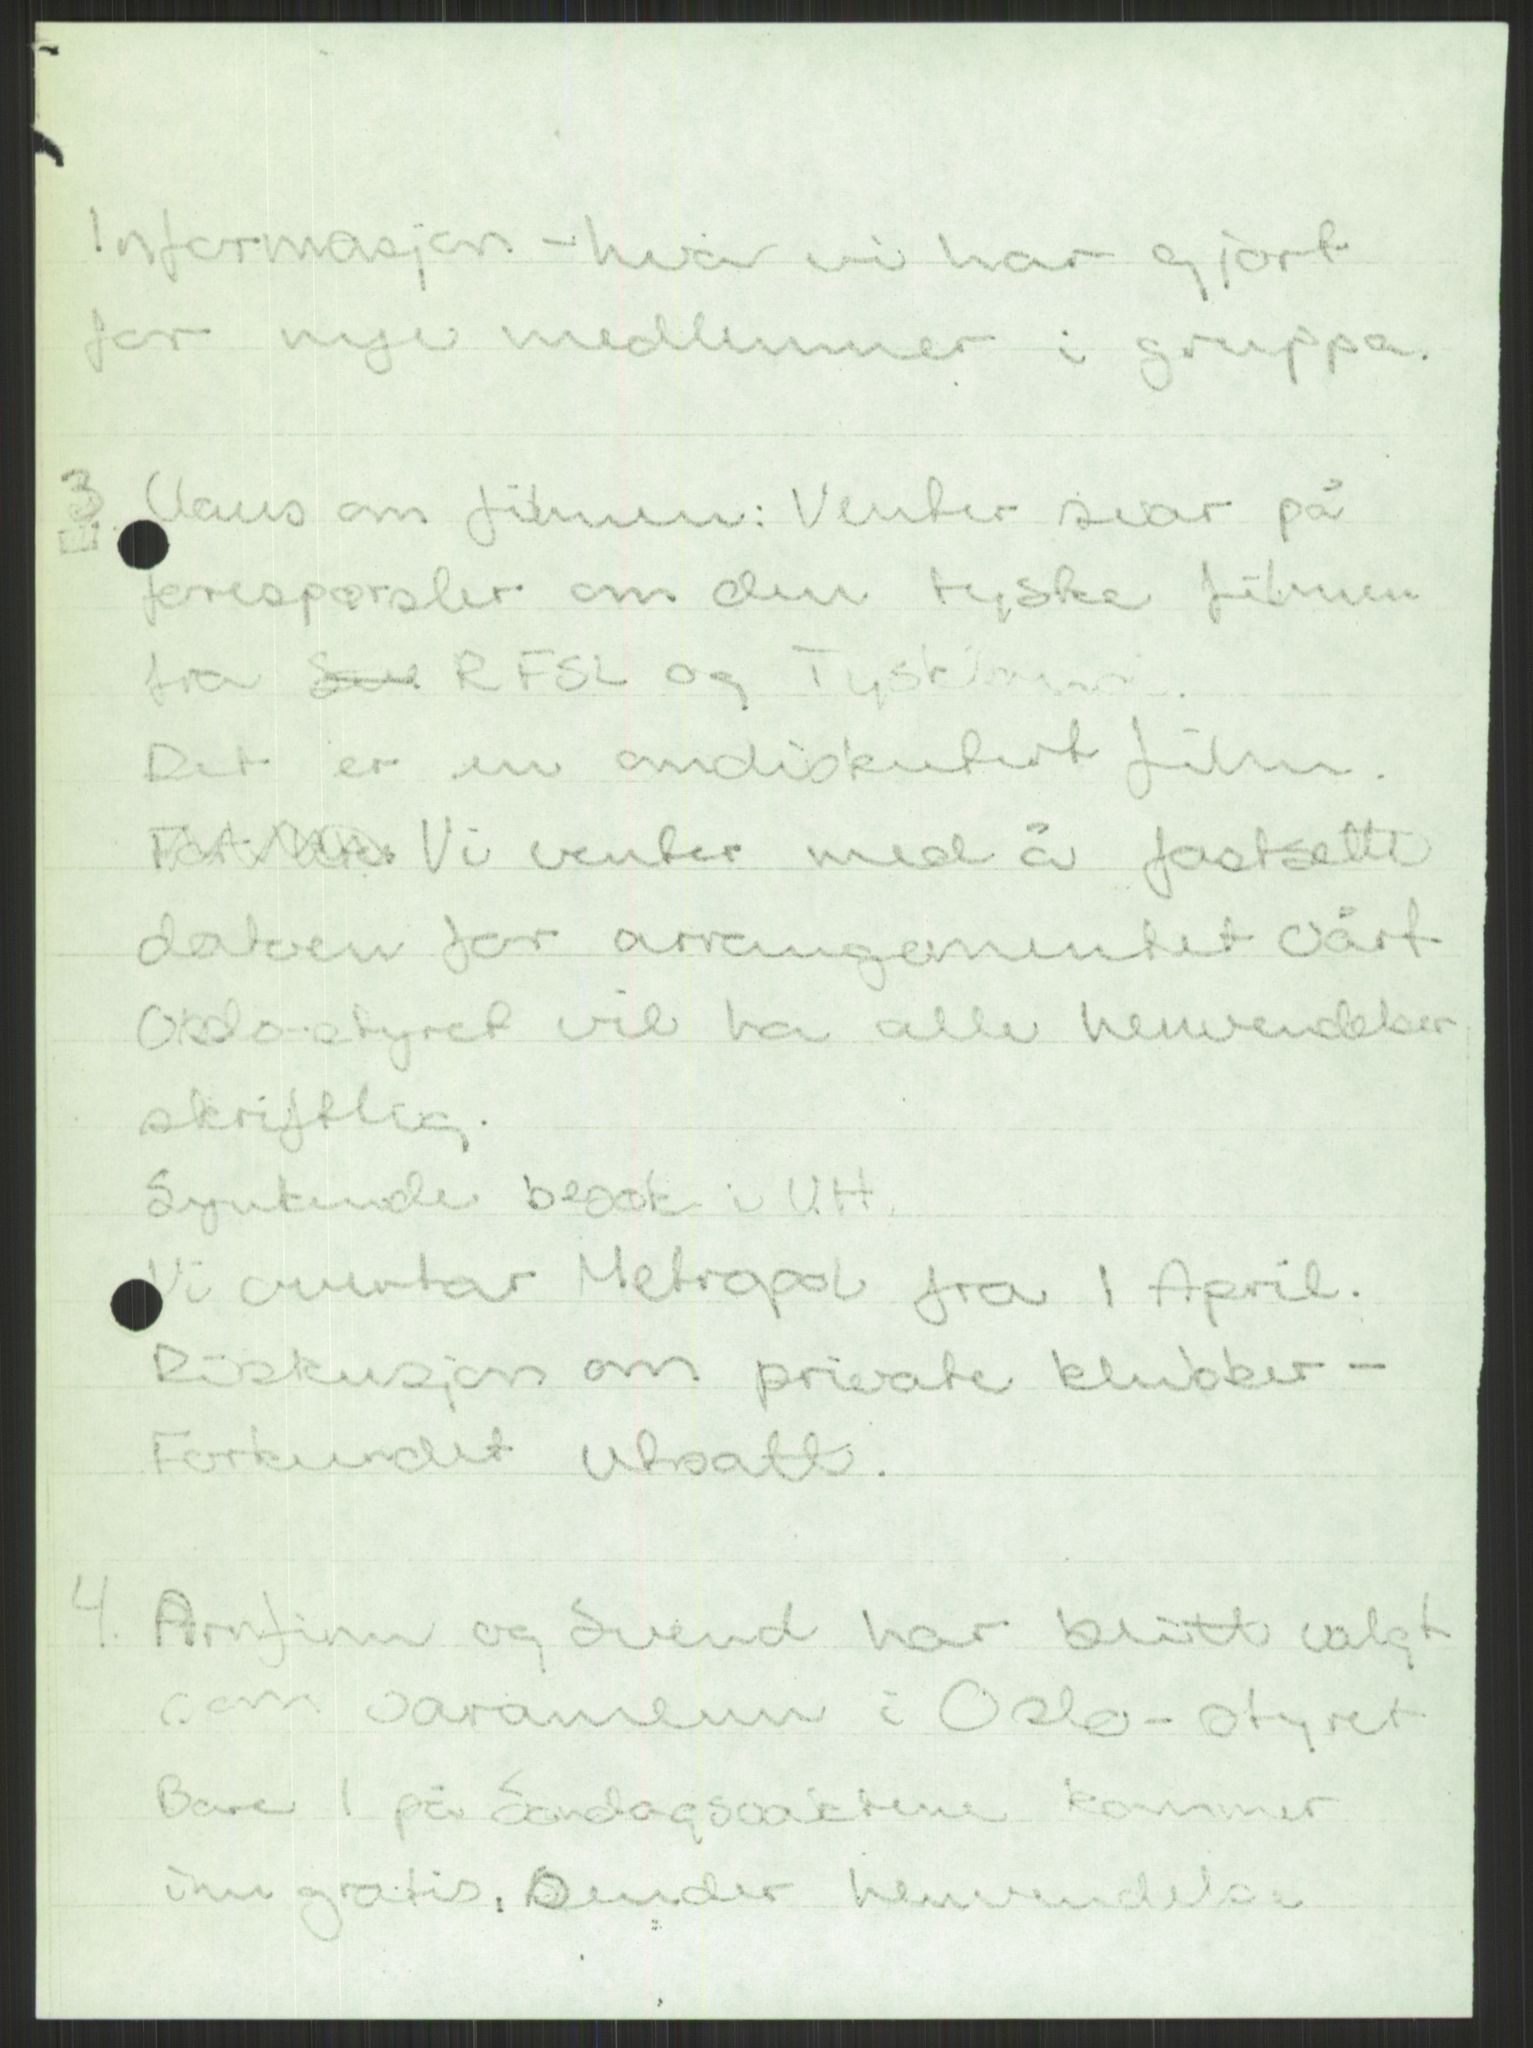 Informasjon - hva vi har gjort
for nye medlemmer i gruppa.
3 Claus om filmen: Venter svar på
forespørsler om den tyske filmen
fra RFSL og Tyskland.
Det er en omdiskutert film.
Vi venter med å fastsette
datoen for arrangementet vårt
Oslo-styret vil ha alle henvendelser
skriftlig.
Synkende besøk i U.H.
Vi overtar Metropol fra 1 April.
Diskusjon om private klubber -
Forbundet utsatt.
4. Arnfinn og Svend har blitt valgt
som varamenn i Oslo-styret
Bare 1 på Søndagsvaktene kommer
inn gratis. Sender henvendelse